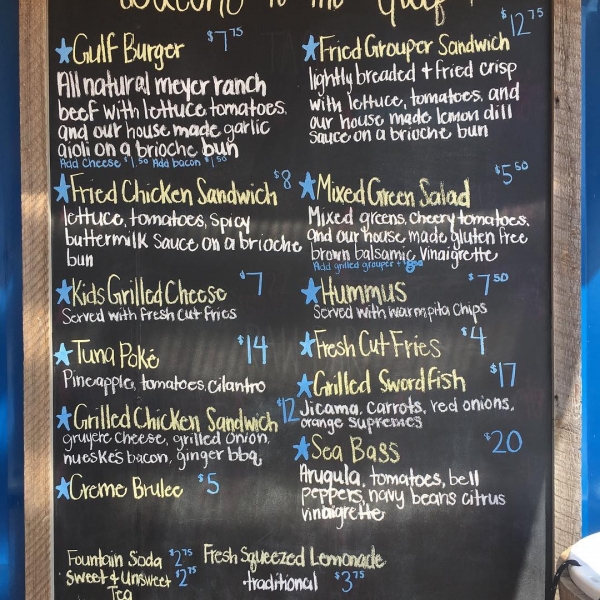 Welcome to the Gulf!
Gulf Burger $7 75
All natural meyer ranch
beef with lettuce, tomatoes,
and our house made garlic
aioli on a brioche bun
Add Cheese $1.50 Add bacon $1.50
Fried Chicken Sandwich $8
lettuce, tomatoes, spicy
buttermilk sauce on a brioche
bun
Kids Grilled Cheese $7
Served with Fresh Cut fries
Tuna Poké $14
Pineapple, tomatoes, cilantro
Grilled Chicken Sandwich $12
gruyere cheese, grilled onion,
nueske's bacon, ginger bbq
Creme Brulee $5
Fried Grouper Sandwich $12 75
lightly breaded + fried crisp
with lettuce, tomatoes, and
our house made lemon dill
sauce on a brioche bun
Mixed Green Salad $5 50
Mixed greens, cheery tomatoes,
and our house made gluten free
brown balsamic vinaigrette
Add grilled grouper +
Hummus $7 50
Served with warm pita chips
Fresh Cut Fries $4
Grilled Swordfish $17
Jicama, carrots, red onions,
orange supremes
Sea Bass $20
Arugula, tomatoes, bell
peppers, navy beans citrus
vinaigrette
Fountain Soda $2 75
Sweet & Unsweet $2 75
Tea
Fresh Squeezed Lemonade
traditional $3 75